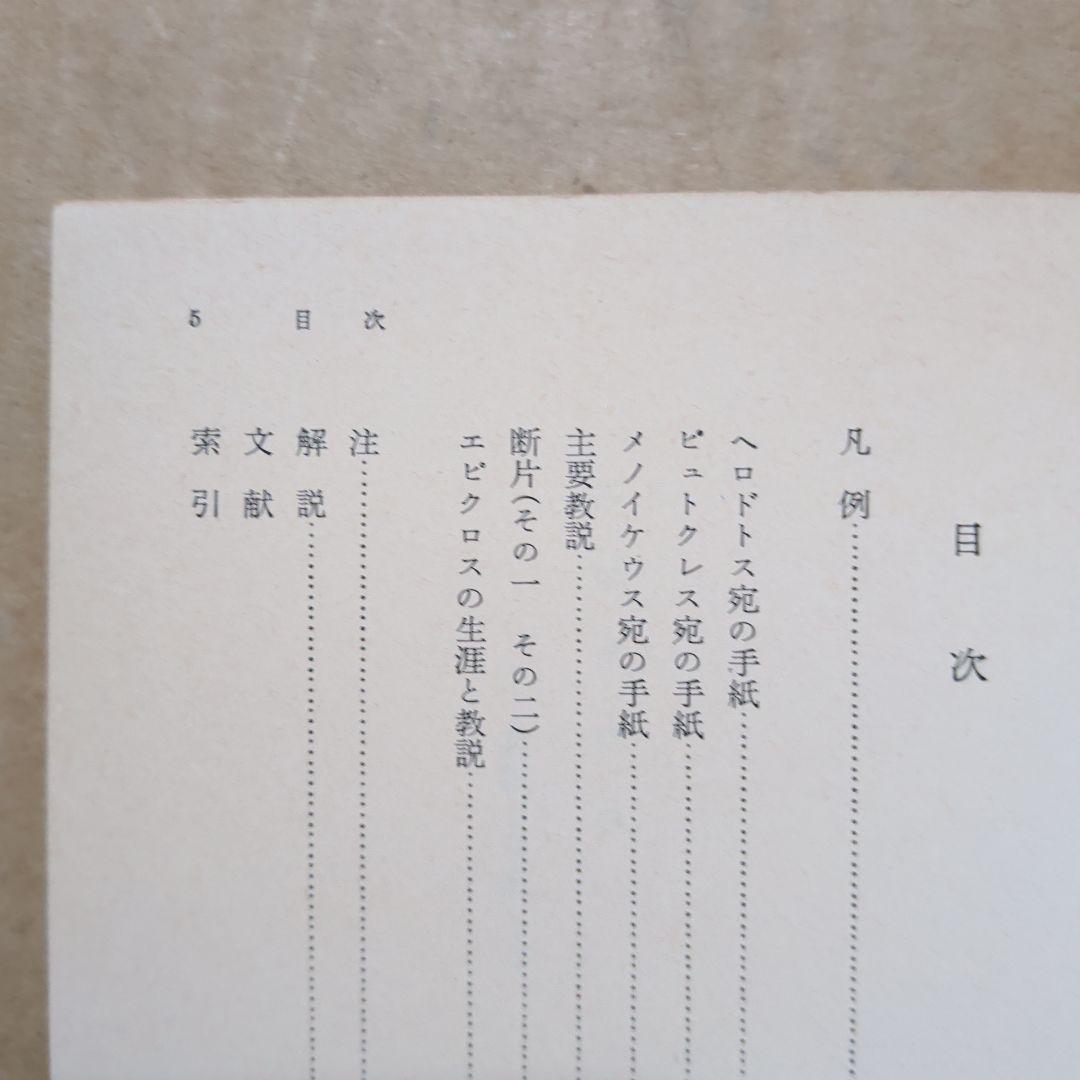 目次
凡例
ヘロドトス宛の手紙
ピュトクレス宛の手紙
メノイケウス宛の手紙
主要教説
断片(その一 その二)
エピクロスの生涯と教説
注
解説
文献
索引
5 目次